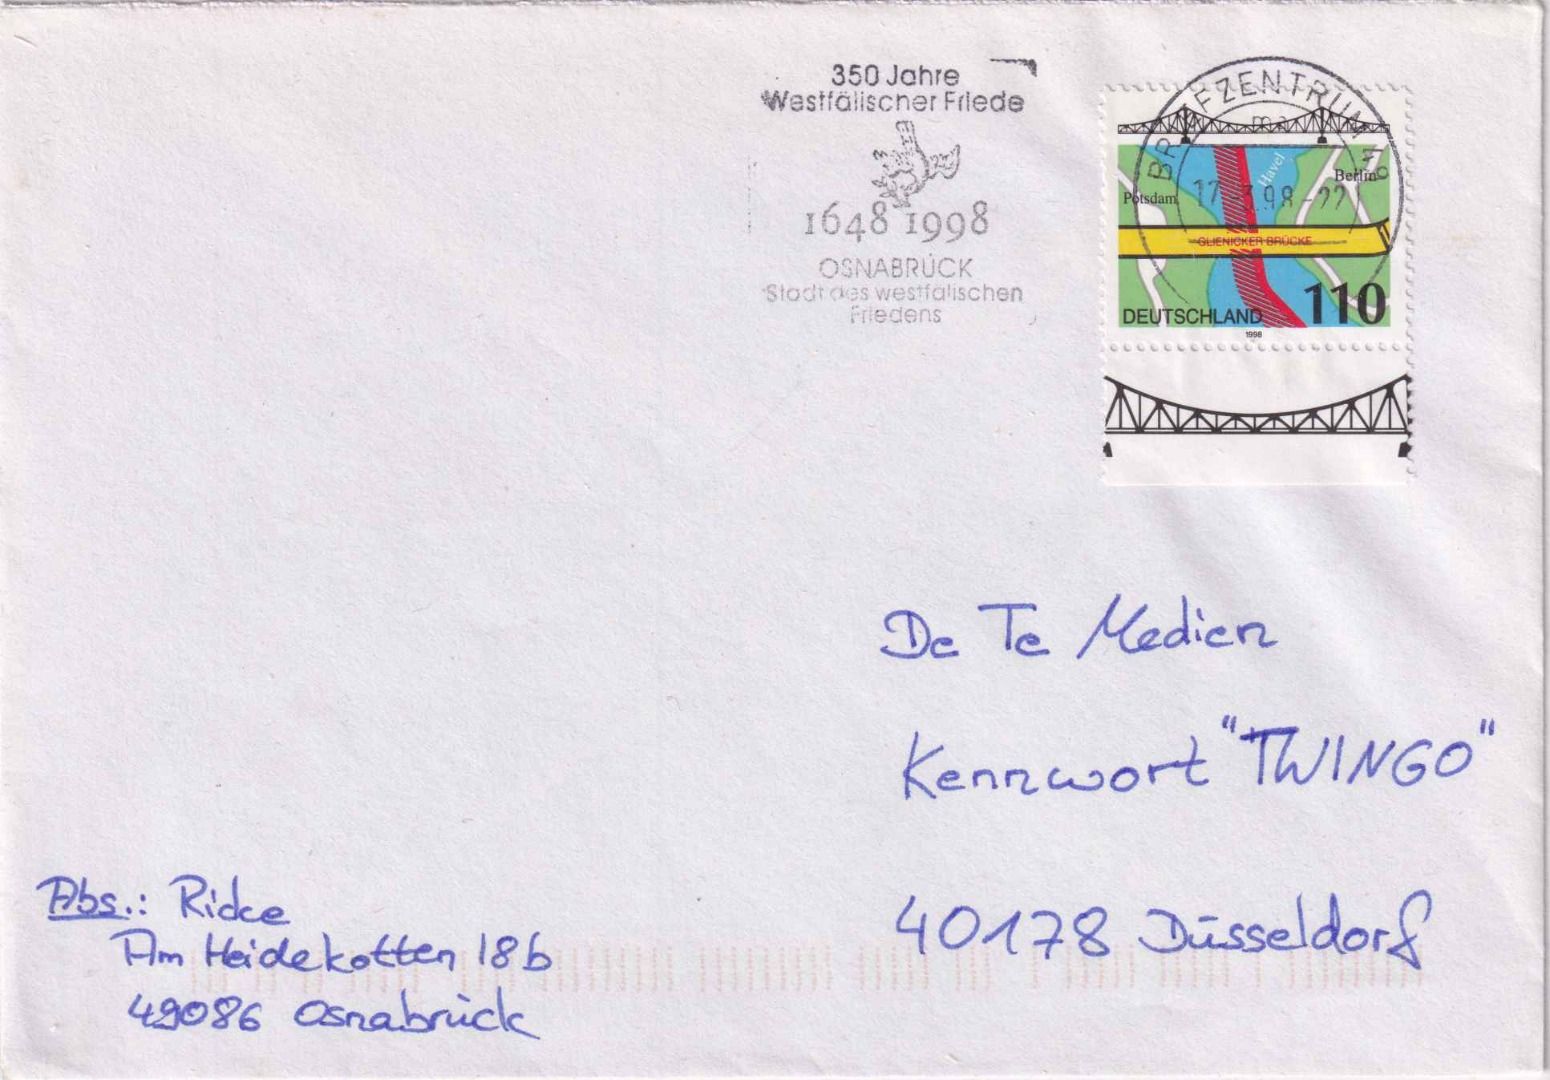 350 Jahre
Westfälischer Friede
1648 1998
OSNABRÜCK
Stadt des westfälischen
Friedens
BRIEFZENTRUM 49
17.-3.98-22
Havel
Berlin
Potsdam
GLIENICKER BRÜCKE
DEUTSCHLAND 110
1998
De Te Medien
Kennwort "TWINGO"
40178 Düsseldorf
Abs.: Ridce
Am Heidekotten 18b
49086 Osnabrück